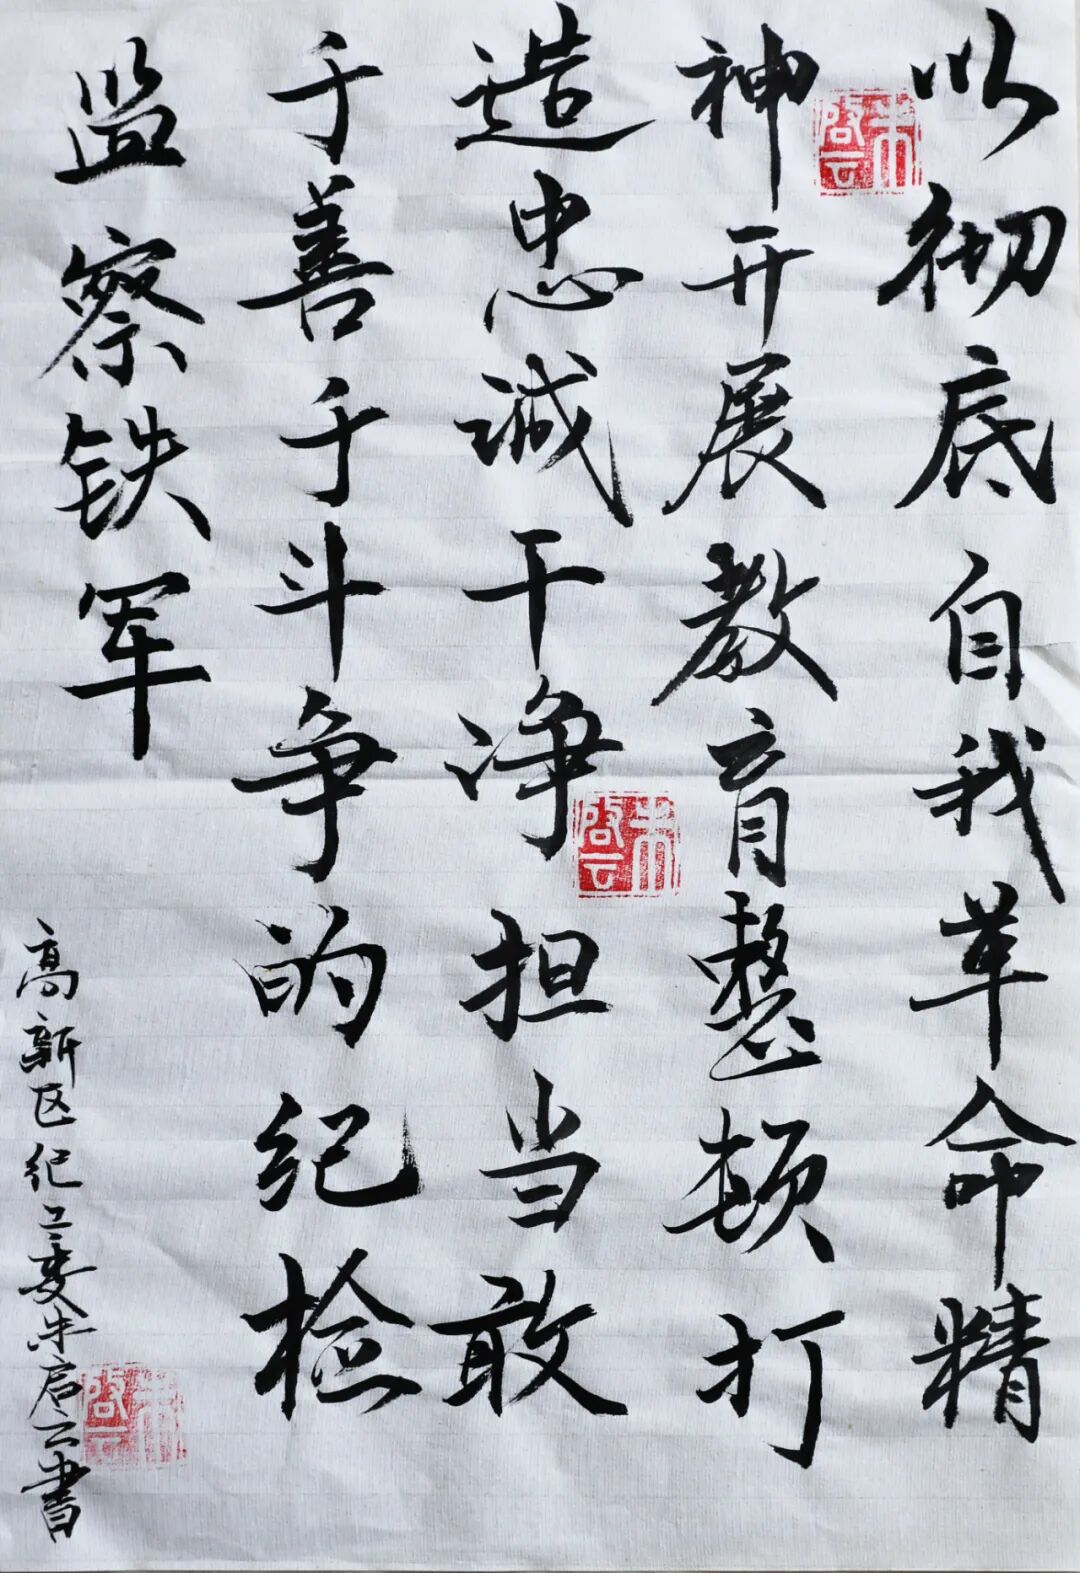 以彻底自我革命精
神开展教育整顿打
造忠诚干净担当敢
于善于斗争的纪检
监察铁军
高新区纪工委朱启云書
朱启云
朱启云
朱启云